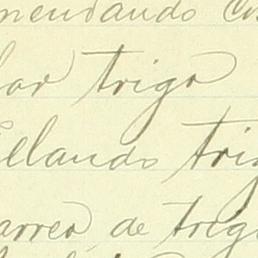 mendando
trigo
ellando trig
arreo, de trigo